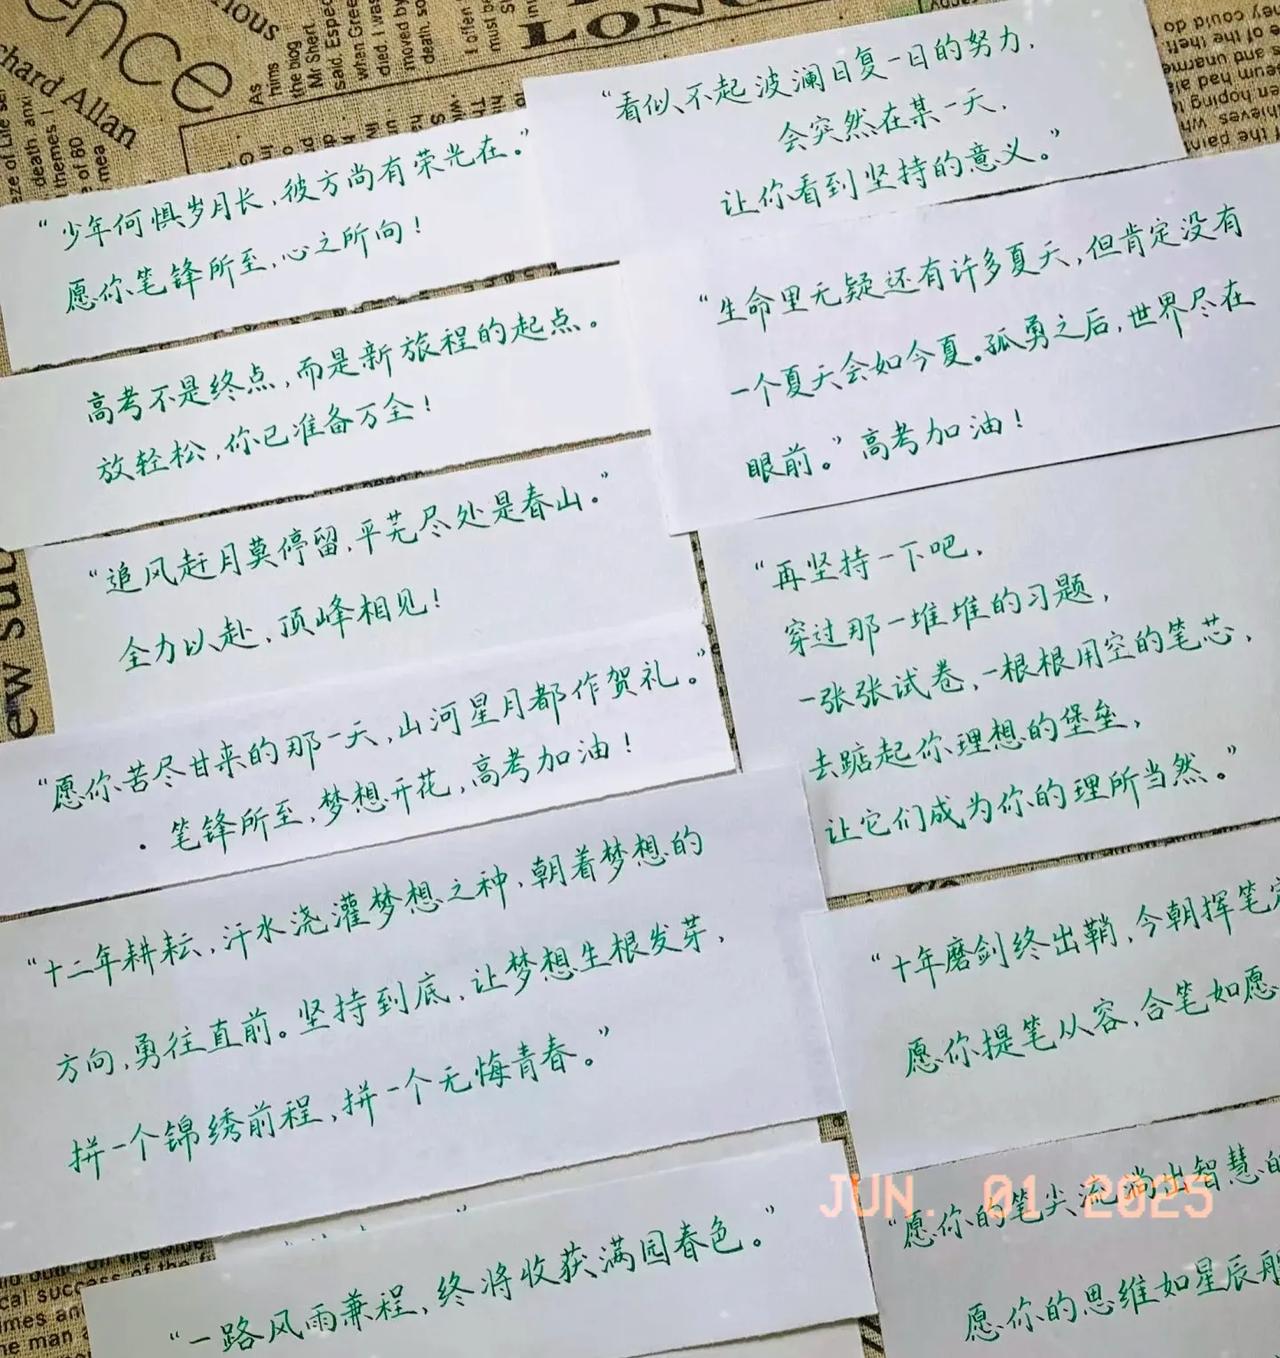 “少年何惧岁月长,彼方尚有荣光在。”
愿你笔锋所至,心之所向!
高考不是终点,而是新旅程的起点。
放轻松,你已准备万全!
“追风赶月莫停留,平芜尽处是春山。”
全力以赴,顶峰相见!
“愿你苦尽甘来的那一天,山河星月都作贺礼。”
· 笔锋所至,梦想开花,高考加油!
“十二年耕耘,汗水浇灌梦想之种,朝着梦想的
方向,勇往直前。坚持到底,让梦想生根发芽,
拼一个锦绣前程,拼一个无悔青春。”
“一路风雨兼程,终将收获满园春色。”
“看似不起波澜日复一日的努力,
会突然在某一天,
让你看到坚持的意义。”
“生命里无疑还有许多夏天,但肯定没有
一个夏天会如今夏。孤勇之后,世界尽在
眼前。”高考加油!
“再坚持一下吧,
穿过那一堆堆的习题,
一张张试卷,一根根用空的笔芯,
去踮起你理想的堡垒,
让它们成为你的理所当然。”
“十年磨剑终出鞘,今朝挥笔定
愿你提笔从容,合笔如愿
“愿你的笔尖流淌出智慧的
愿你的思维如星辰般
JUN. 01 2025
ence
chard Allan
LONG